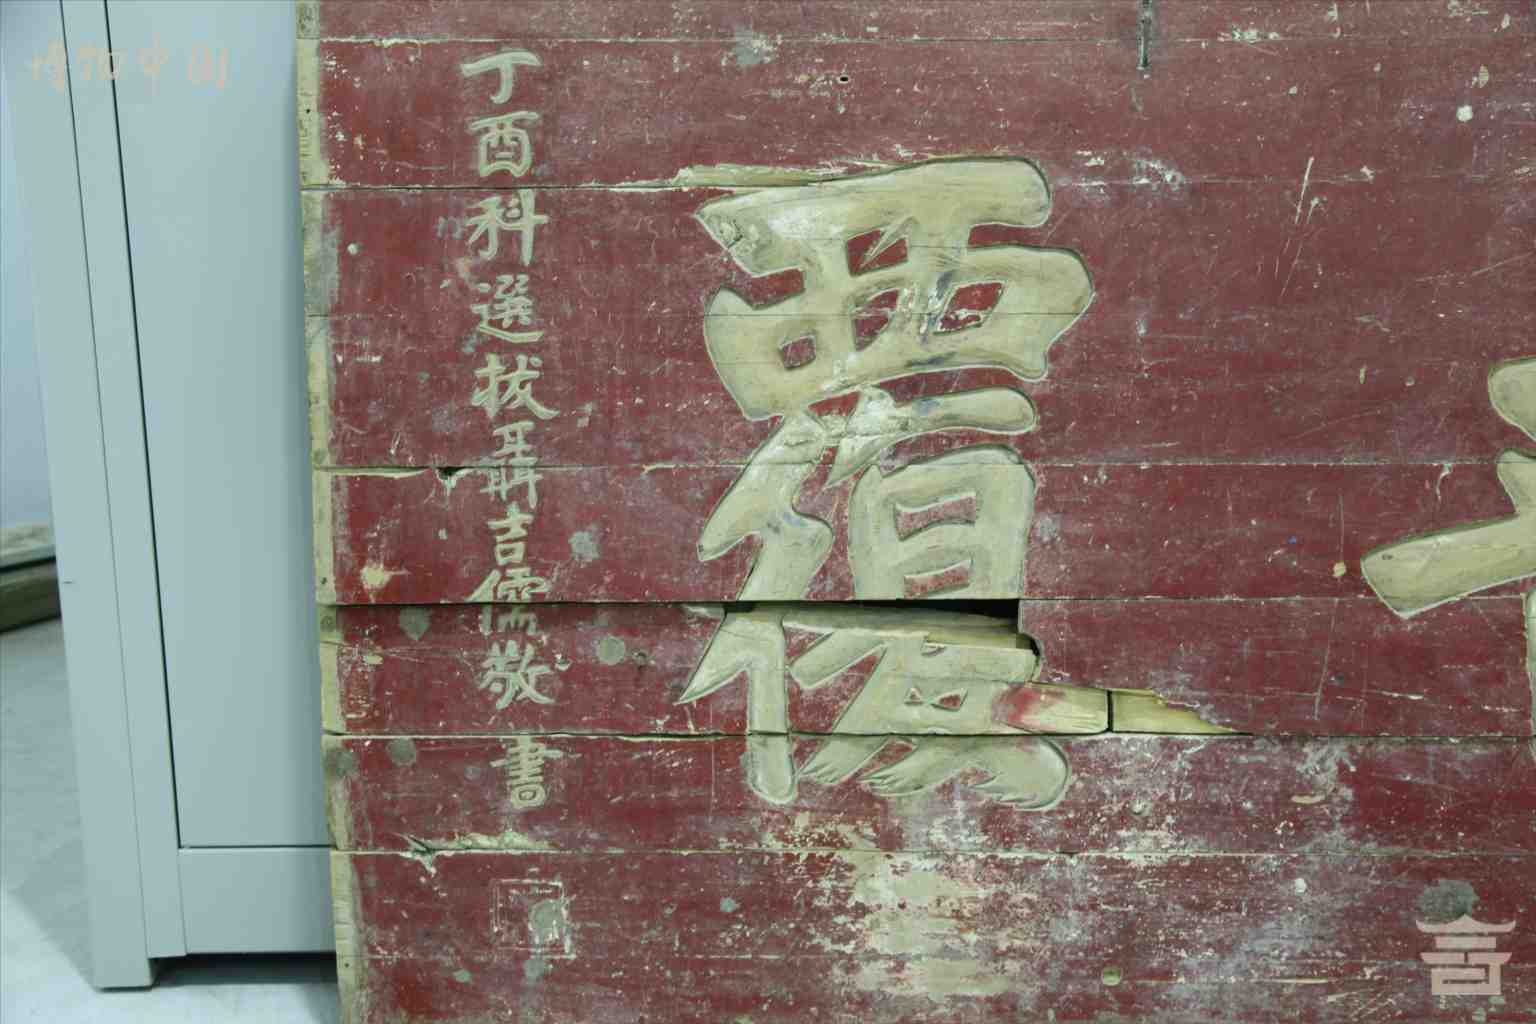 博物中国
覆
丁酉科選拔聶吉儒敬書